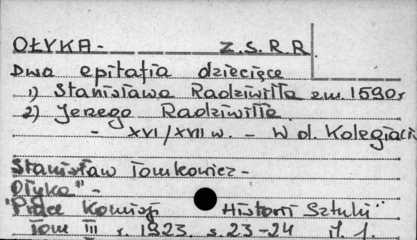 OŁYKA - Z.S.R.R.
Dwa epitafia dziecięce
1) Stanisława Radziwiłła zm. 1590r
2) Jerzego Radziwiłła
- XVI/XVII w. - W d. Kolegiaci
Stanisław Tomkowicz -
Ołyka" -
"Prace Komisji Historii Sztuki"
Tom III r. 1923 s. 23-24 il. 1.